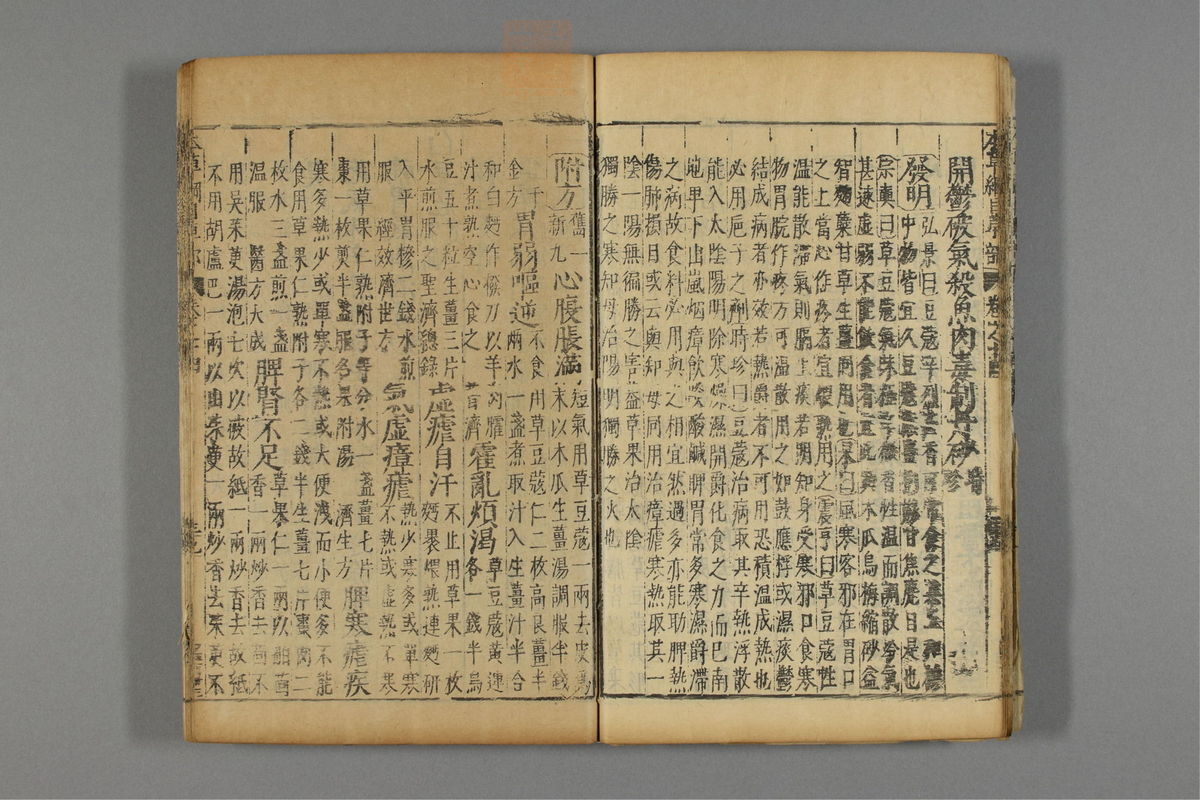 本草綱目草部 卷之十四
開鬱破氣殺魚肉毒制丹砂時珍
發明弘景曰豆蔻辛烈甚香可常食之其五和糝
中物皆宜人豆蔻廉薑枸櫞甘蕉麂目是也
宗奭曰草豆蔻氣味極辛微香性温而調散冷氣
甚速虛弱不能飲食者宜此與木瓜烏梅縮砂益
智麴蘗甘草生薑同用也杲曰風寒客邪在胃口
之上當心作疼者宜煨熟用之震亨曰草豆蔻性
温能散滯氣利膈上痰若明知身受寒邪口食寒
物胃脘作疼方可温散用之如鼓應桴或濕痰鬱
結成病者亦效若熱鬱者不可用恐積温成熱也
必用巵子之劑時珍曰豆蔻治病取其辛熱浮散
能入太陰陽明除寒燥濕開鬱化食之力而已南
地卑下山嵐烟瘴飲啖酸鹹脾胃常多寒濕鬱滯
之病故食料必用與之相宜然過多亦能助脾熱
傷肺損目或云與知母同用治瘴瘧寒熱取其一
陰一陽無偏勝之害蓋草果治太陰
獨勝之寒知母治陽明獨勝之火也
附方舊一新九心腹脹滿短氣用草豆蔻一兩去皮爲
末以木瓜生薑湯調服半錢
千金方胃弱嘔逆不食用草豆蔻仁二枚高良薑半
兩水一盞煮取汁入生薑汁半合
和白麪作撥刀以羊肉臛
汁煮熟空心食之普濟霍亂煩渴草豆蔻黃連
各一錢半烏
豆五十粒生薑三片
水煎服之聖濟總錄虛瘧自汗不止用草果一枚
麪裹煨熟連麪研
入平胃糝二錢水煎
服經效濟世方氣虛瘴瘧熱少寒多或單寒
不熱或虛熱不寒
用草果仁熟附子等分水一盞薑七片
棗一枚煎半盞服名果附湯濟生方脾寒瘧疾
寒多熱少或單寒不熱或大便洩而小便多不能
食用草果仁熟附子各二錢半生薑七片棗肉二
枚水三盞煎一盞
温服醫方大成脾腎不足草果仁一兩以舶茴
香一兩炒香去茴不
用吳茱萸湯泡七次以破故紙一兩炒香去故紙
不用胡盧巴一兩以山茱萸一兩炒香去茱萸不